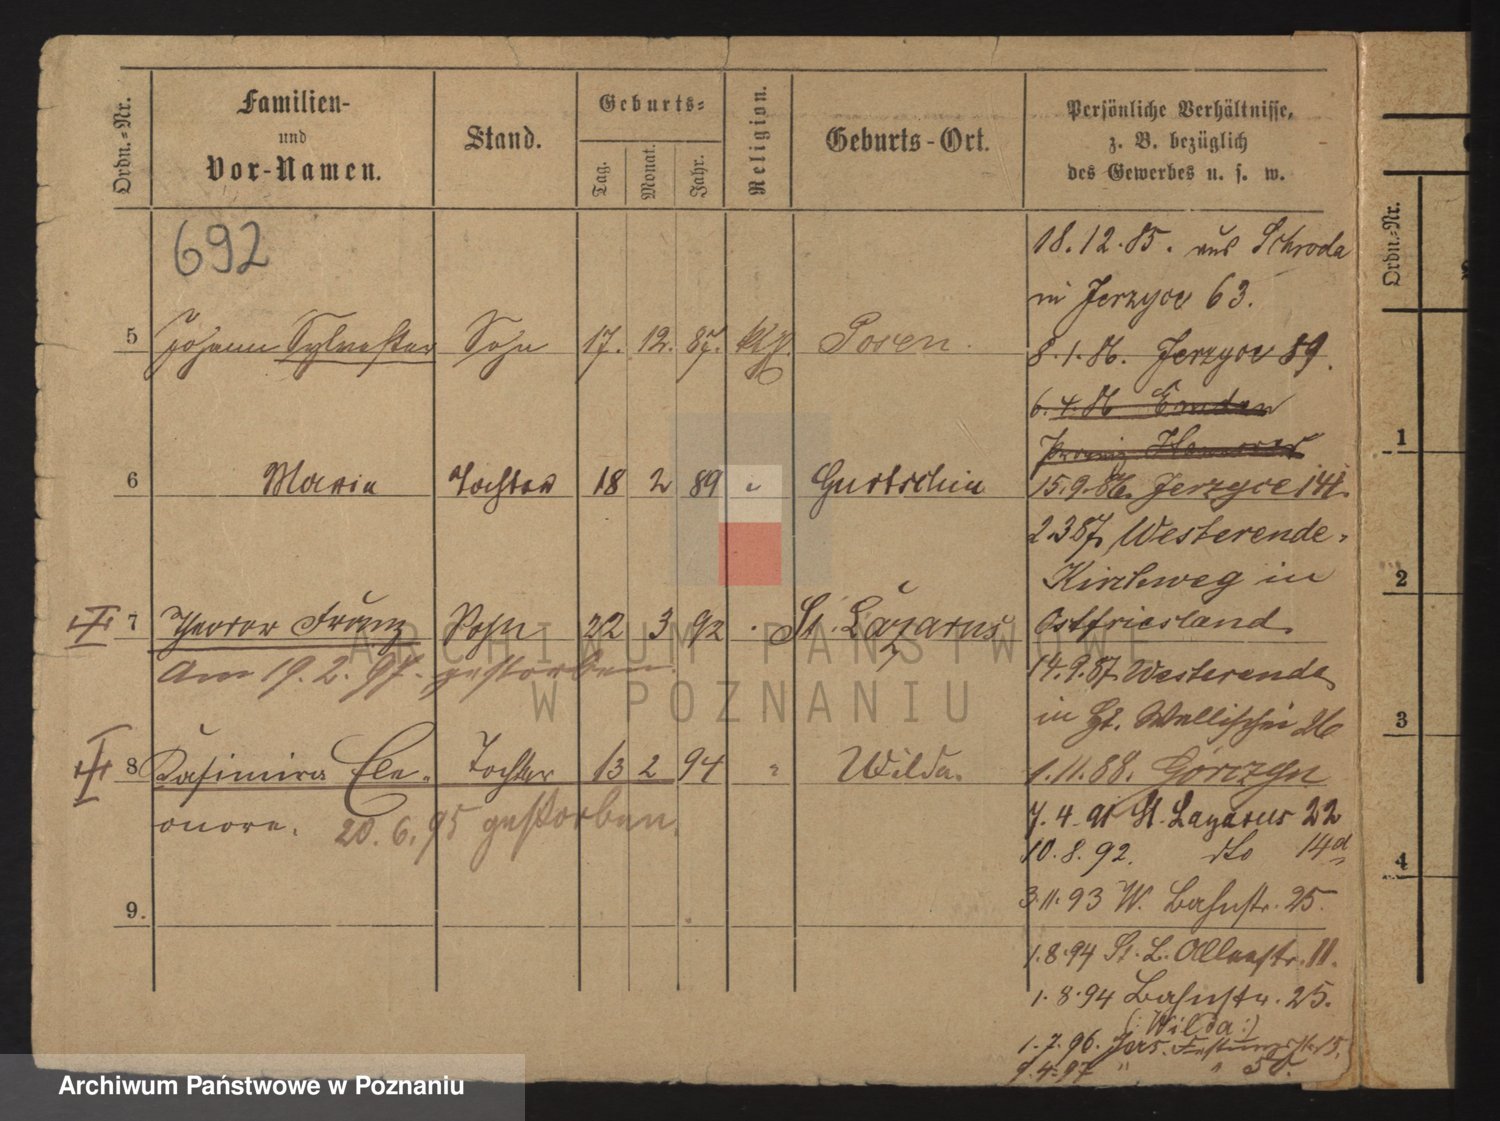 Ordn.-Nr.
Familien-
und
Vor-Namen.
Stand.
Geburts-
Tag.
Monat.
Jahr.
Religion.
Geburts-Ort.
Persönliche Verhältnisse,
z. B. bezüglich
des Gewerbes u. s. w.
692
18.12.85. aus Schroda
in Jerzyce 63.
5 Johann Sylvester Sohn 17. 12. 87. Posen.
8.1.86. Jerzyce 89.
6.4.86 Emden
Provinz Hannover
6 Maria Tochter 18 2 89 " Gurtschin
15.9.86. Jerzyce 141.
2.3.87. Westerende-
Kirchweg in
Ostfriesland.
7 Theodor Franz Sohn 22 3 92 " St. Lazarus
Am 19.2.97. gestorben.
14.9.87. Westerende
in Gr. Wallischei 26
8 Kasimira Ele- Tochter 13 2 94 " Wilda.
onore. 20.6.95 gestorben.
1.11.88. Górczyn
7.4.91 St. Lazarus 22
10.8.92. dto 14d
3.11.93 W. Bahnstr. 25.
9.
1.8.94 St. L. Allenstr. 11.
1.8.94 Bahnstr. 25.
(:Wilda:)
1.7.96. Jers. Festungsstr. 15.
9.4.97 " " 50.
Ordn.-Nr.
1
2
3
4
ARCHIWUM PAŃSTWOWE
W POZNANIU
Archiwum Państwowe w Poznaniu